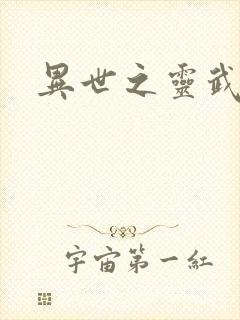 異世之靈武
宇宙第一紅